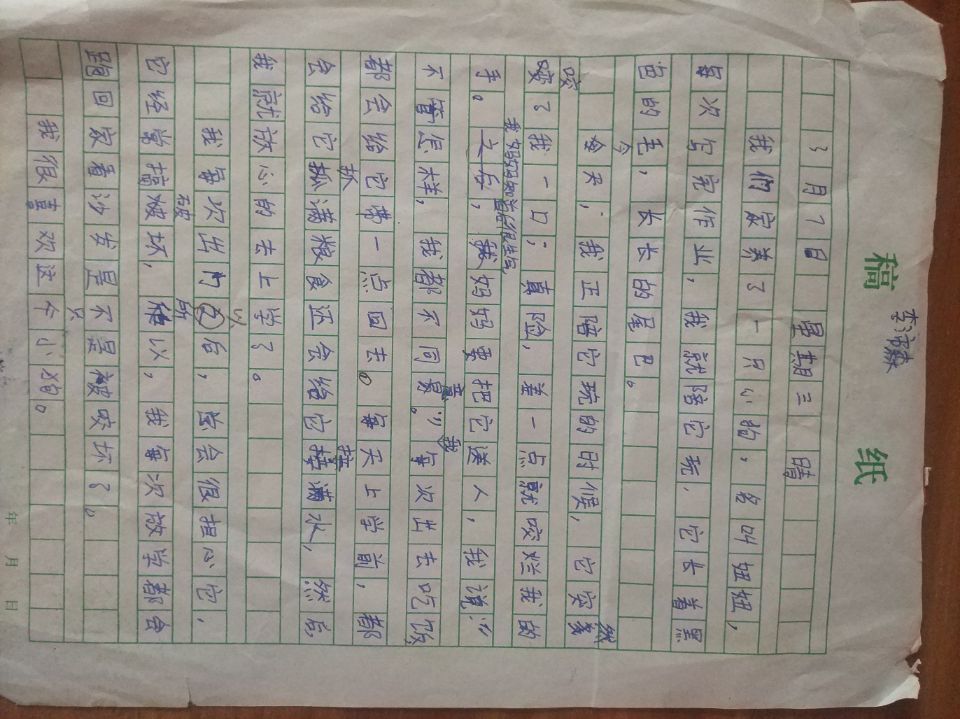 稿 纸
李沛森
3月7日 星期三 晴
我们家养了一只小狗,名叫妞妞,
每次写完作业,我就陪它玩,它长着黑
白的毛,长长的尾巴。
今天,我正陪它玩的时候,它突然
咬了我一口;真险,差一点就咬烂我的
手。之后,我妈妈知道后很生气,妈妈要把它送人,我说“
不管怎样,我都不同意。”我每次出去吃饭
都会给它带一点回去。每天上学前,都
会给它抓满粮食还会给它接满水,然后
我就放心的去上学了。
我每次出门以后,总会很担心它,
它经常搞破坏,所以,我每次放学都会
跑回家看沙发是不是又被咬坏了。
我很喜欢这个小狗。
年 月 日